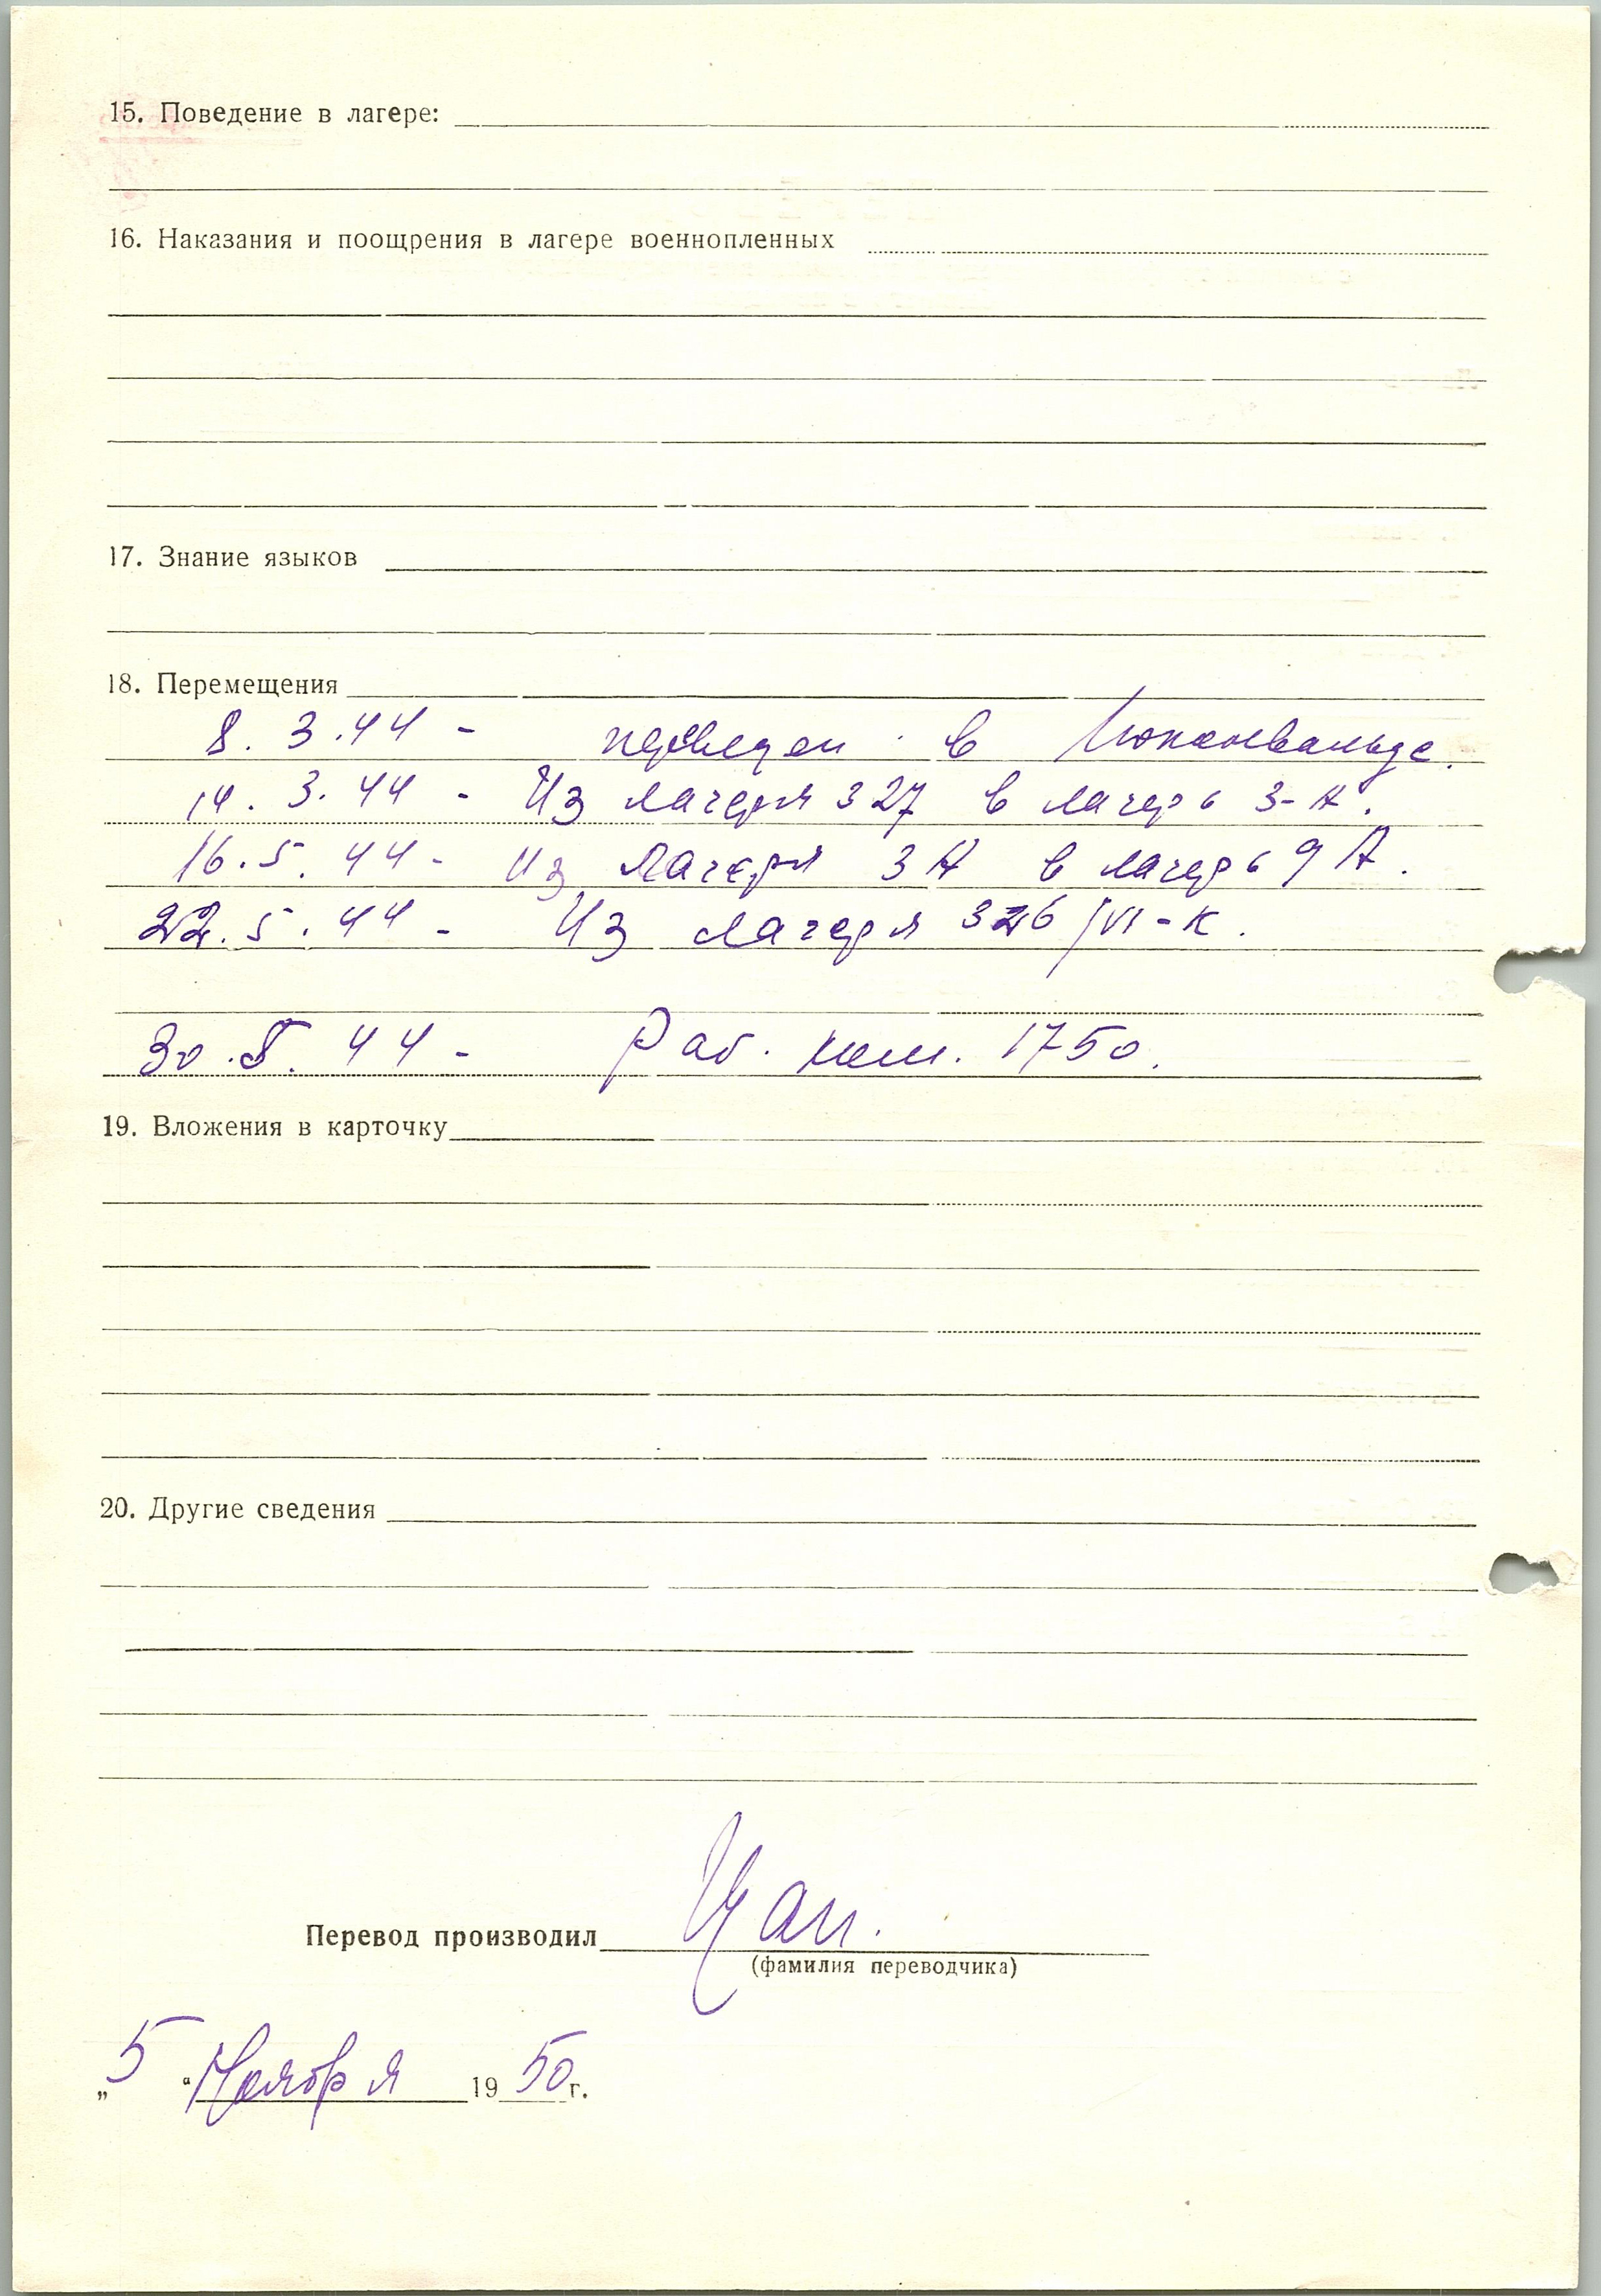 15. Поведение в лагере:
16. Наказания и поощрения в лагере военнопленных
17. Знание языков
18. Перемещения
8. 3. 44 - в
14. 3. 44 - Из лагеря 327 в лагерь 3-А.
16. 5. 44 - Из лагеря 3А в лагерь 9А.
22. 5. 44 - Из лагеря 326/VI-К.
30. 5. 44 - Раб. ком. 1750.
19. Вложения в карточку
20. Другие сведения
Перевод производил
(фамилия переводчика)
„5“ Ноября 1950 г.